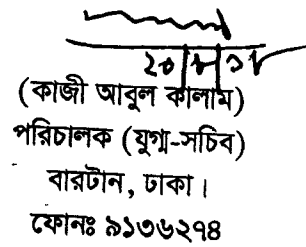 (কাজী আবুল কালাম)
পরিচালক (যুগ্ম-সচিব)
বারটান, ঢাকা।
ফোনঃ ৯১৩৬২৭৪